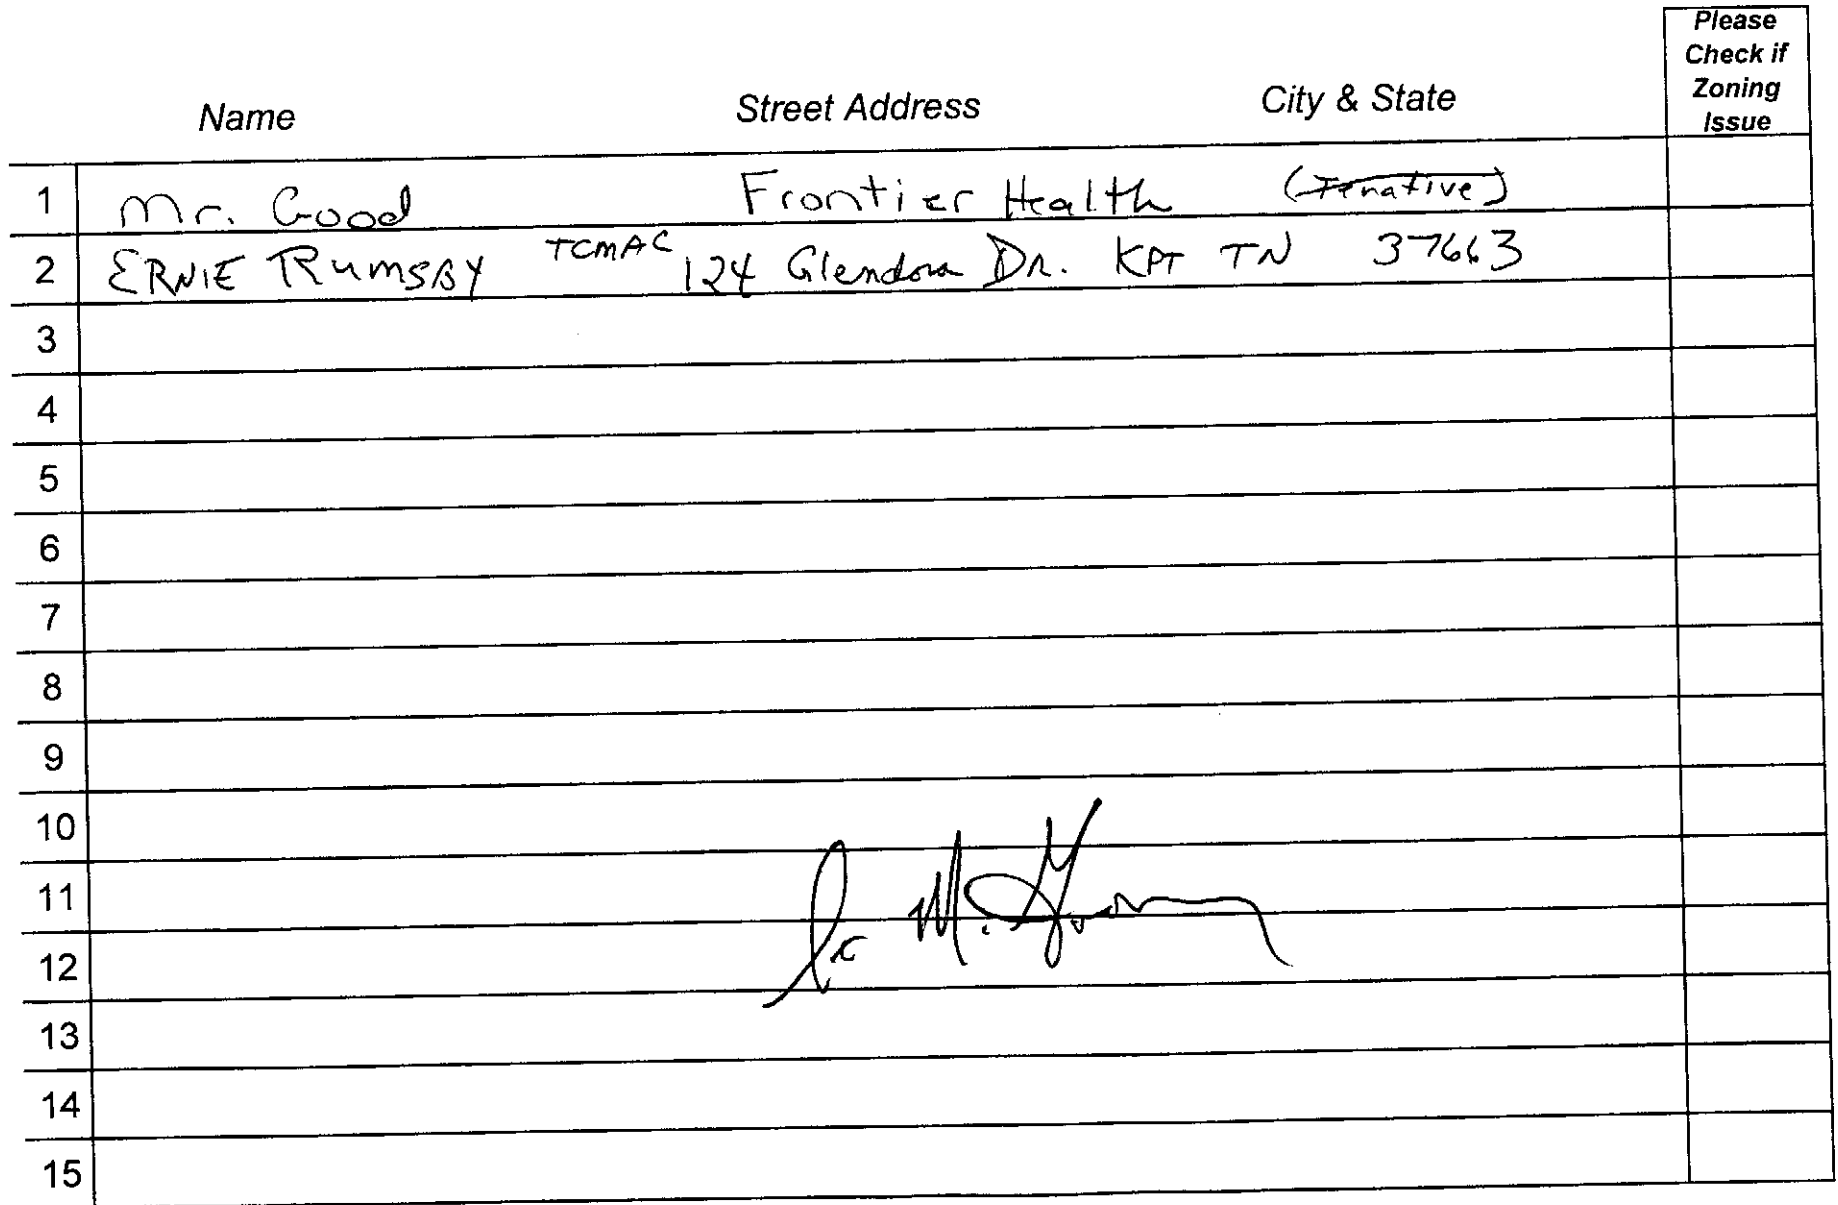 Name Street Address City & State Please Check if Zoning Issue
1 Mr. Good Frontier Health (Tenative)
2 ERNIE RUMSBY TCMAC 124 Glendora Dr. KPT TN 37663
3
4
5
6
7
8
9
10
11
12
13
14
15